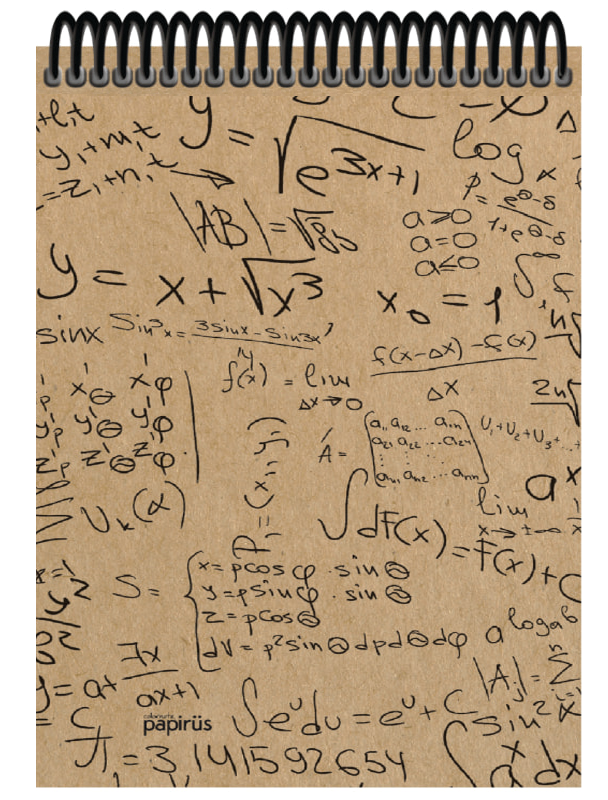 +l₁t
y₁+m₁t
=z₁+n₁t
y = √e^(3x+1)
log
|AB| = √
a≥0
a=0
a≤0
y = x + √x³
x₀ = 1
sinx
Sin³x = 3sinx - Sin3x
f(x) = lim Δx→0
f(x-Δx) - f(x)
Δx
x'Θ x'φ
y'p y'Θ y'φ
z'p z'Θ z'φ
2n
A = (a₁₁ a₁₂ ... a₁n
a₂₁ a₂₂ ... a₂n
an₁ an₂ ... ann)
U₁+U₂+U₃+...+
A₁=(x₁,y₁)
Uₖ(α)
aˣ
lim
∫dF(x) = F(x) + C
S = { x=pcosφ · sinΘ
y=psinφ · sinΘ
z=pcosΘ
dV = p²sinΘdpdΘdφ
a^(logab)
y = a+ 7x
ax+1
|Aⱼ|=Σ
∫eᵘdu = eᵘ + C
sin²
papirüs
π = 3,141592654
∫aˣdx